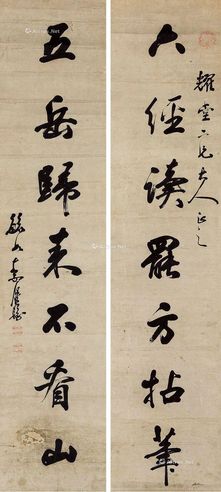 耀堂兄大人正之
六經讀罷方拈筆
五岳歸來不看山